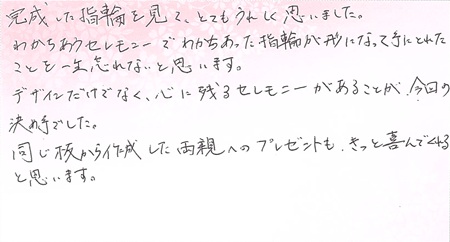 完成した指輪を見て、とてもうれしく思いました。
わかちあうセレモニーでわかちあった指輪が形になって手にとれた
ことを一生忘れないと思います。
デザインだけでなく、心に残るセレモニーがあることが、今回の
決め手でした。
同じ板から作成した両親へのプレゼントも、きっと喜んでくれる
と思います。